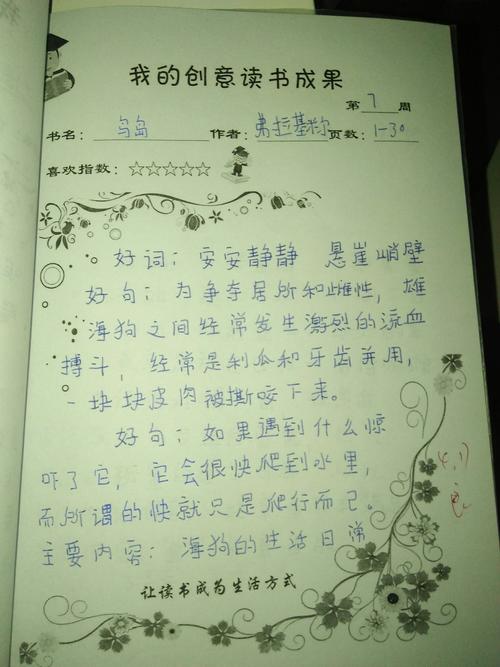 我的创意读书成果
第7周
书名：鸟岛 作者：弗拉基米尔 页数：1-30
喜欢指数：☆☆☆☆☆
好词；安安静静 悬崖峭壁
好句；为争夺居所和雌性，雄
海狗之间经常发生激烈的流血
搏斗，经常是利爪和牙齿并用，
一块块皮肉被撕咬下来。
好句；如果遇到什么惊
吓了它，它会很快爬到水里，
而所谓的快就只是爬行而已。
主要内容：海狗的生活日常
让读书成为生活方式